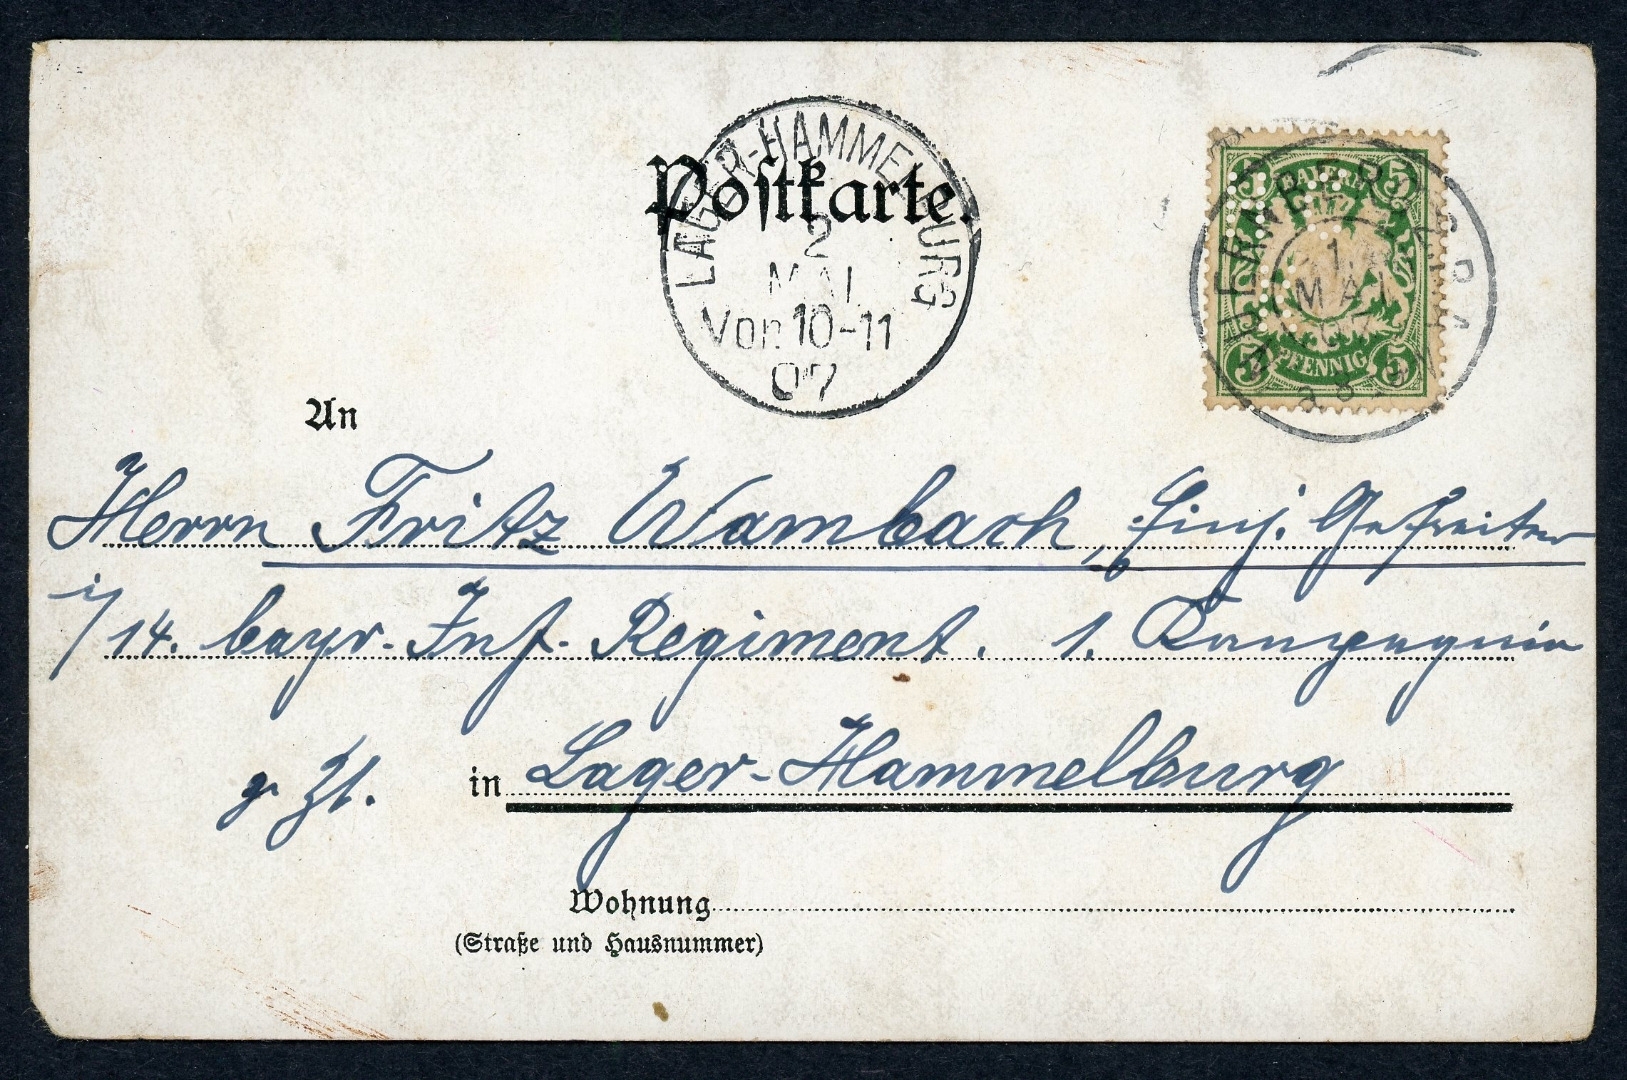 Postkarte.
LAGER-HAMMELBURG
2
MAI
Vor. 10-11
07
BAYERN
5 5
NUERNBERG
1.
MAI
PFENNIG
5 5
An
Herrn Fritz Wambach, Einj. Gefreiter
i/14. bayr. Inf. Regiment. 1. Kompagnie
z. Zt. in Lager-Hammelburg
Wohnung
(Straße und Hausnummer)